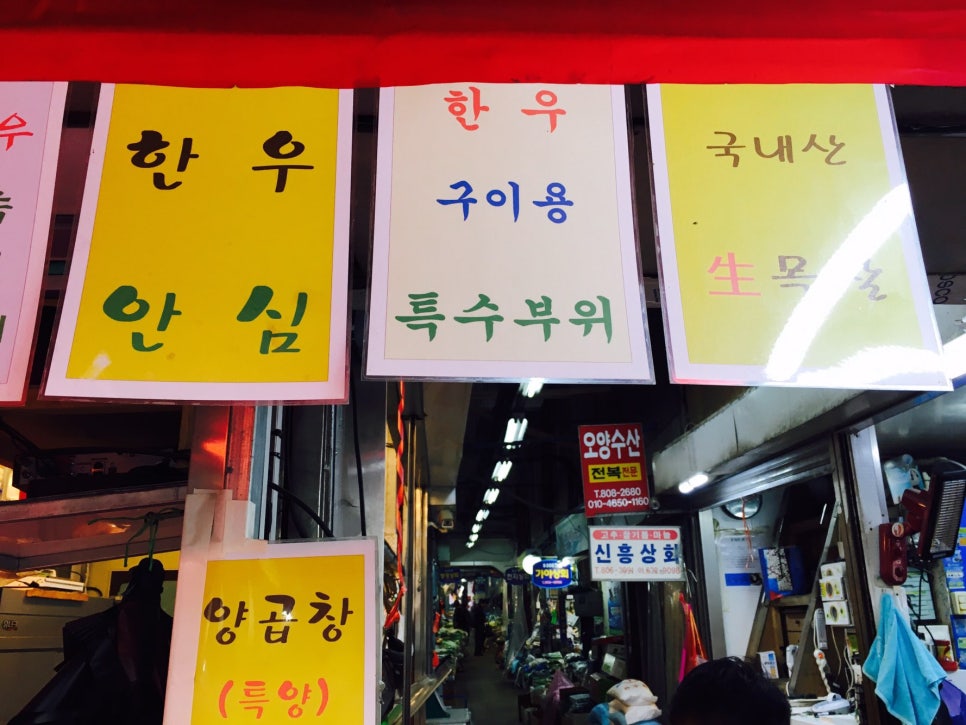 우
한 우
안 심
한 우
구이용
특수부위
국내산
生목
오양수산
전복전문
T.808-2680
010-4650-1160
신흥상회
가야상회
양곱창
(특양)